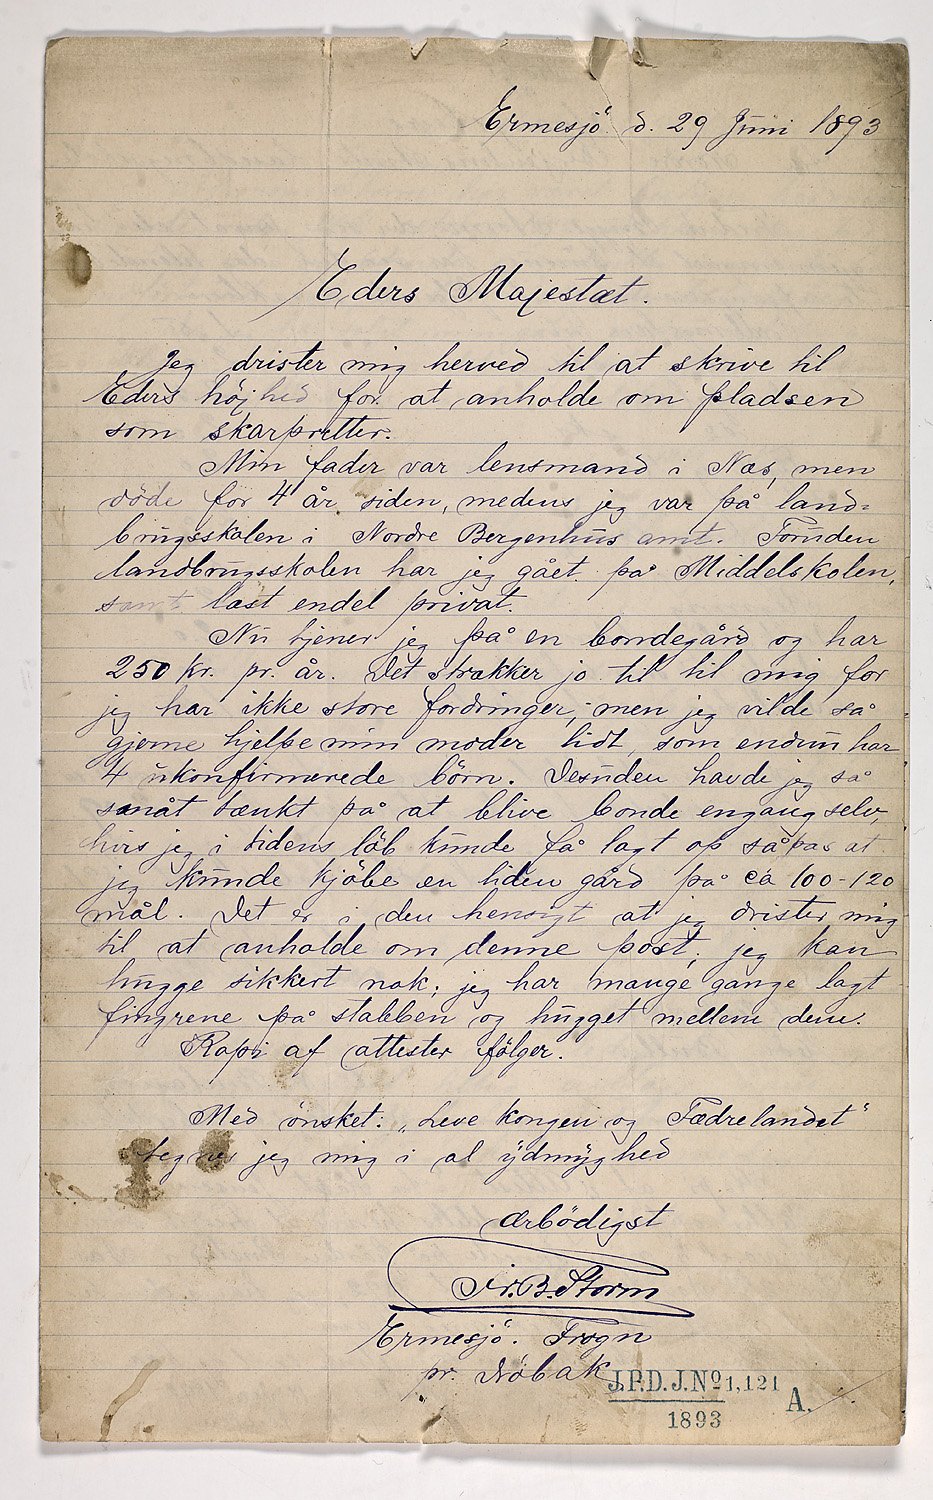 Ermesjö d. 29 Juni 1893
Eders Majestæt.
Jeg drister mig herved til at skrive til
Eders höjhed for at anholde om pladsen
som skarpretter.
Min fader var lensmand i Næs, men
döde for 4 år siden, medens jeg var på land-
brugsskolen i Nordre Bergenhus amt. Foruden
landbrugsskolen har jeg gået på Middelskolen,
samt læst endel privat.
Nu tjener jeg på en bondegård og har
250 kr. pr. år. Det strækker jo til til mig for
jeg har ikke store fordringer, men jeg vilde så
gjerne hjelpe min moder lidt, som endnu har
4 ukonfirmerede börn. Desuden havde jeg så
småt tænkt på at blive bonde engang selv,
hvis jeg i tidens löb kunde få lagt op såpas at
jeg kunde kjöbe en liden gård på ca 100-120
mål. Det er i den hensigt at jeg drister mig
til at anholde om denne post, jeg kan
hugge sikkert nok; jeg har mange gange lagt
fingrene på stabben og hugget mellem dem.
Kopi af attester fölger.
Med önsket: „Leve kongen og Fædrelandet"
tegner jeg mig i al ydmyghed
ærbödigst
B. Storm
Ermesjö. Frogn
pr. Dröbak
J.P.D.J.No 1,121
1893
A.